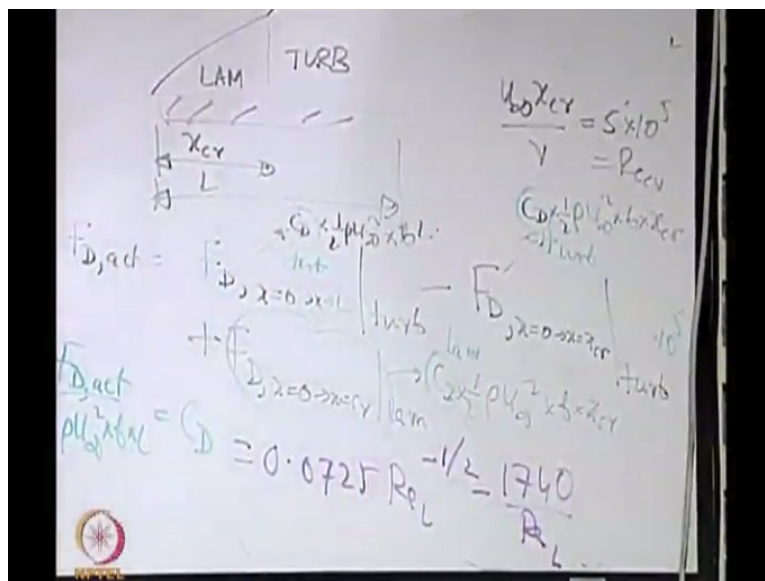 LAM TURB
x_cr
L
U_∞ x_cr / ν = 5×10^5
= Re_cr
C_D × 1/2 ρU_∞^2 × b × x_cr
turb
C_D × 1/2 ρU_∞^2 × b L
turb
F_D,act = F_D, x=0→x=L |turb − F_D, x=0→x=x_cr |turb
+ F_D, x=0→x=cr |lam → C_D × 1/2 ρU_∞^2 × b × x_cr
lam
F_D,act / ρU_∞^2 × b × L = C_D = 0.0725 Re_L^-1/2 − 1740 / Re_L
NPTEL